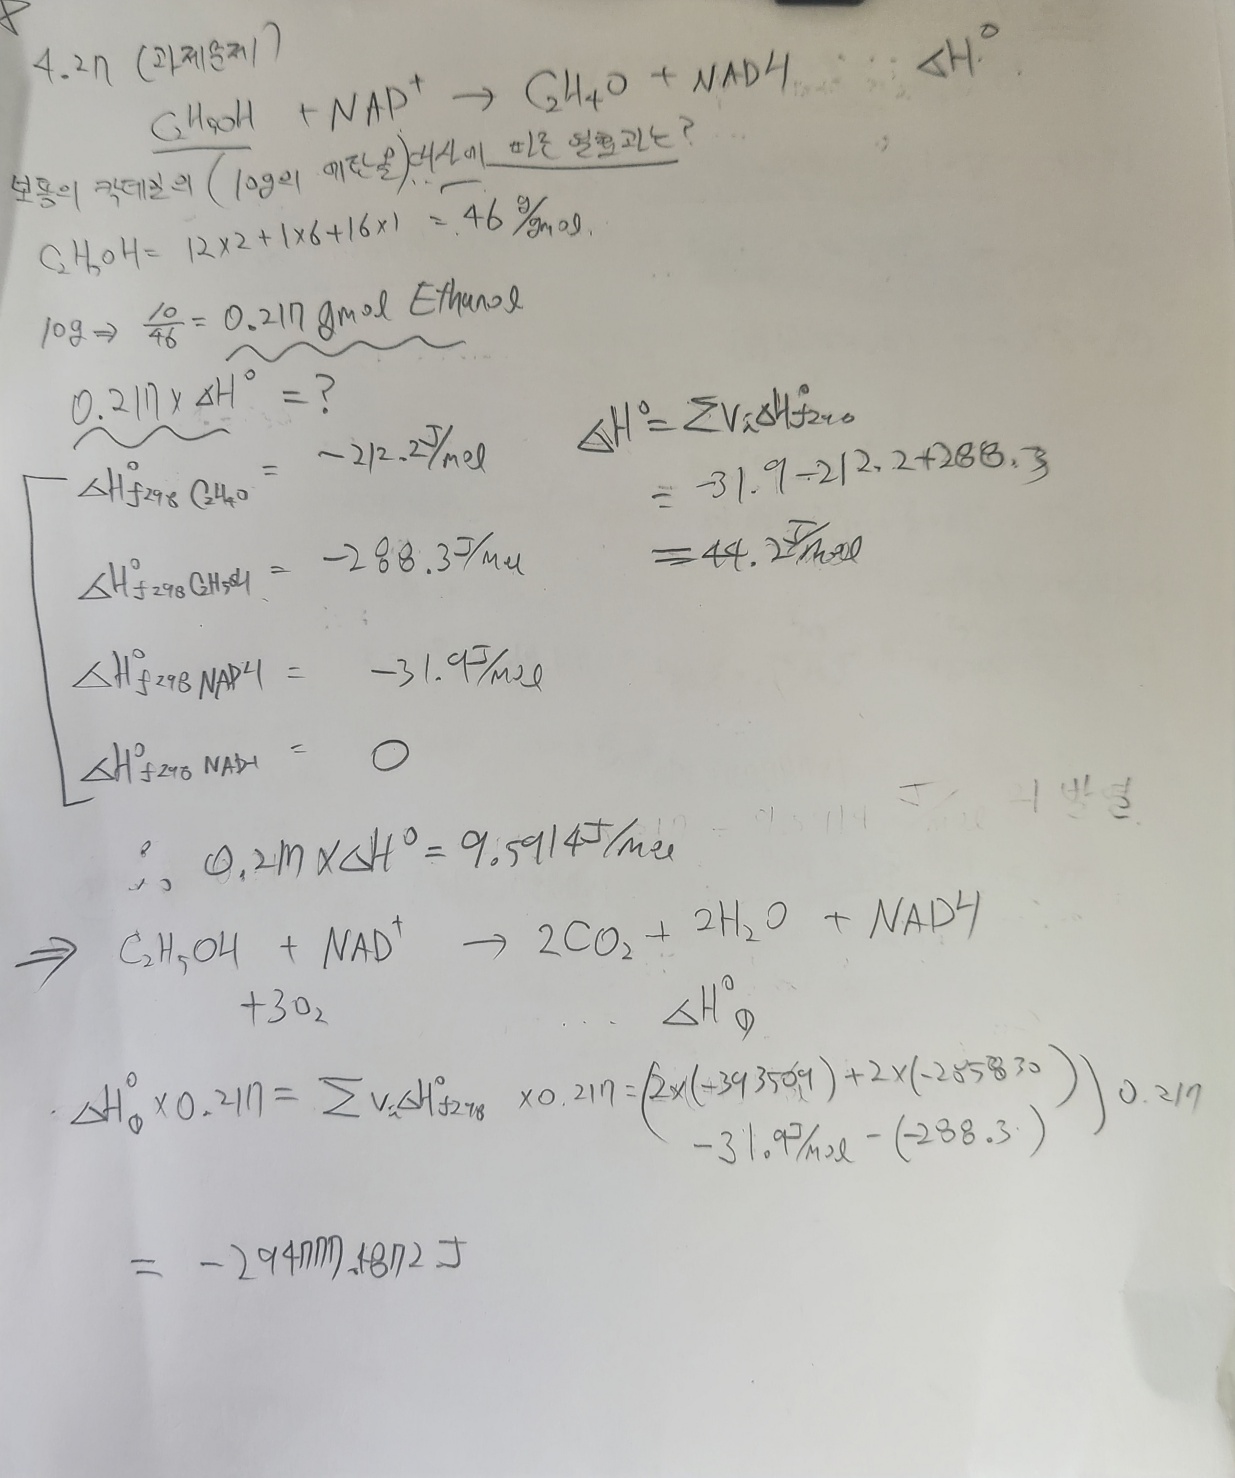 4.27 (과제문제)
C₂H₅OH + NAD⁺ → C₂H₄O + NADH ΔH°
보통의 칵테일의 (10g의 에탄올) 대사에 따른 열효과는?
C₂H₅OH = 12×2+1×6+16×1 = 46 g/gmol.
10g ⇒ 10/46 = 0.217 gmol Ethanol
0.217 × ΔH° = ?
ΔH°f298 C₂H₄O = -212.2 J/mol
ΔH°f298 C₂H₅OH = -288.3 J/mol
ΔH°f298 NADH = -31.9 J/mol
ΔH°f298 NAD+ = 0
ΔH° = ΣVᵢΔH°f298
= -31.9-212.2+288.3
= 44.2 J/mol
∴ 0.217 × ΔH° = 9.5914 J/mol
⇒ C₂H₅OH + NAD⁺ → 2CO₂ + 2H₂O + NADH
+3O₂ ... ΔH°①
ΔH°① × 0.217 = ΣVᵢΔH°f298 × 0.217 = (2×(-393509) + 2×(-285830)
-31.9 J/mol - (-288.3)) 0.217
= -294777.1872 J